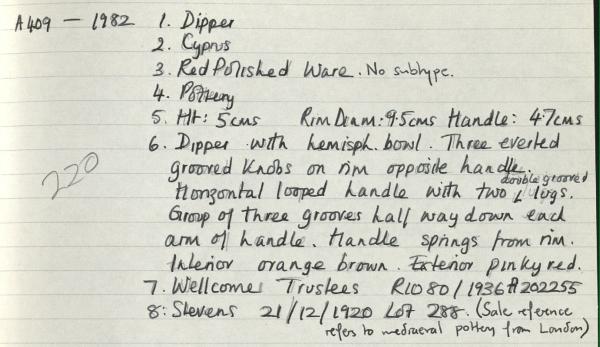 A409 — 1982 1. Dipper
2. Cyprus
3. Red Polished Ware. No subtype.
4. Pottery
5. Ht: 5cms Rim Diam: 9.5cms Handle: 4.7cms
6. Dipper with hemisph. bowl. Three everted
grooved knobs on rim opposite handle.
double grooved
Horizontal looped handle with two lugs.
220
Group of three grooves half way down each
arm of handle. Handle springs from rim.
Interior orange brown. Exterior pinky red.
7. Wellcome Trustees R1080/1936 A202255
8: Stevens 21/12/1920 Lot 288. (Sale reference
refers to mediaeval pottery from London)